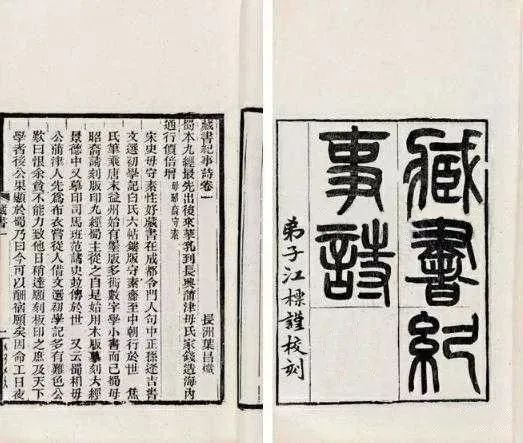 臧書紀
事詩
弟子江標謹校刻
藏書紀事詩卷一
長洲葉昌熾
蜀本九經最先出後來孳乳到長興蒲津毋氏家錢造海內
通行價倍增 毋昭裔守素
宋史毋守素性好藏書在成都令門人句中正孫逢吉書
文選初學記白氏六帖鏤版守素齎至中朝行於世 焦
氏筆乘唐末益州始有墨版多術數字學小書而已蜀毋
昭裔請刻版印九經蜀主從之自是始用木版摹刻六經
景德中又摹印司馬班范諸史竝傳於世 又云蜀相毋
公蒲津人先為布衣嘗從人借文選初學記多有難色公
歎曰恨余貧不能力致他日稍達願刻板印之庶及天下
學者後公果顯於蜀乃曰今可以酬宿願矣因命工日夜